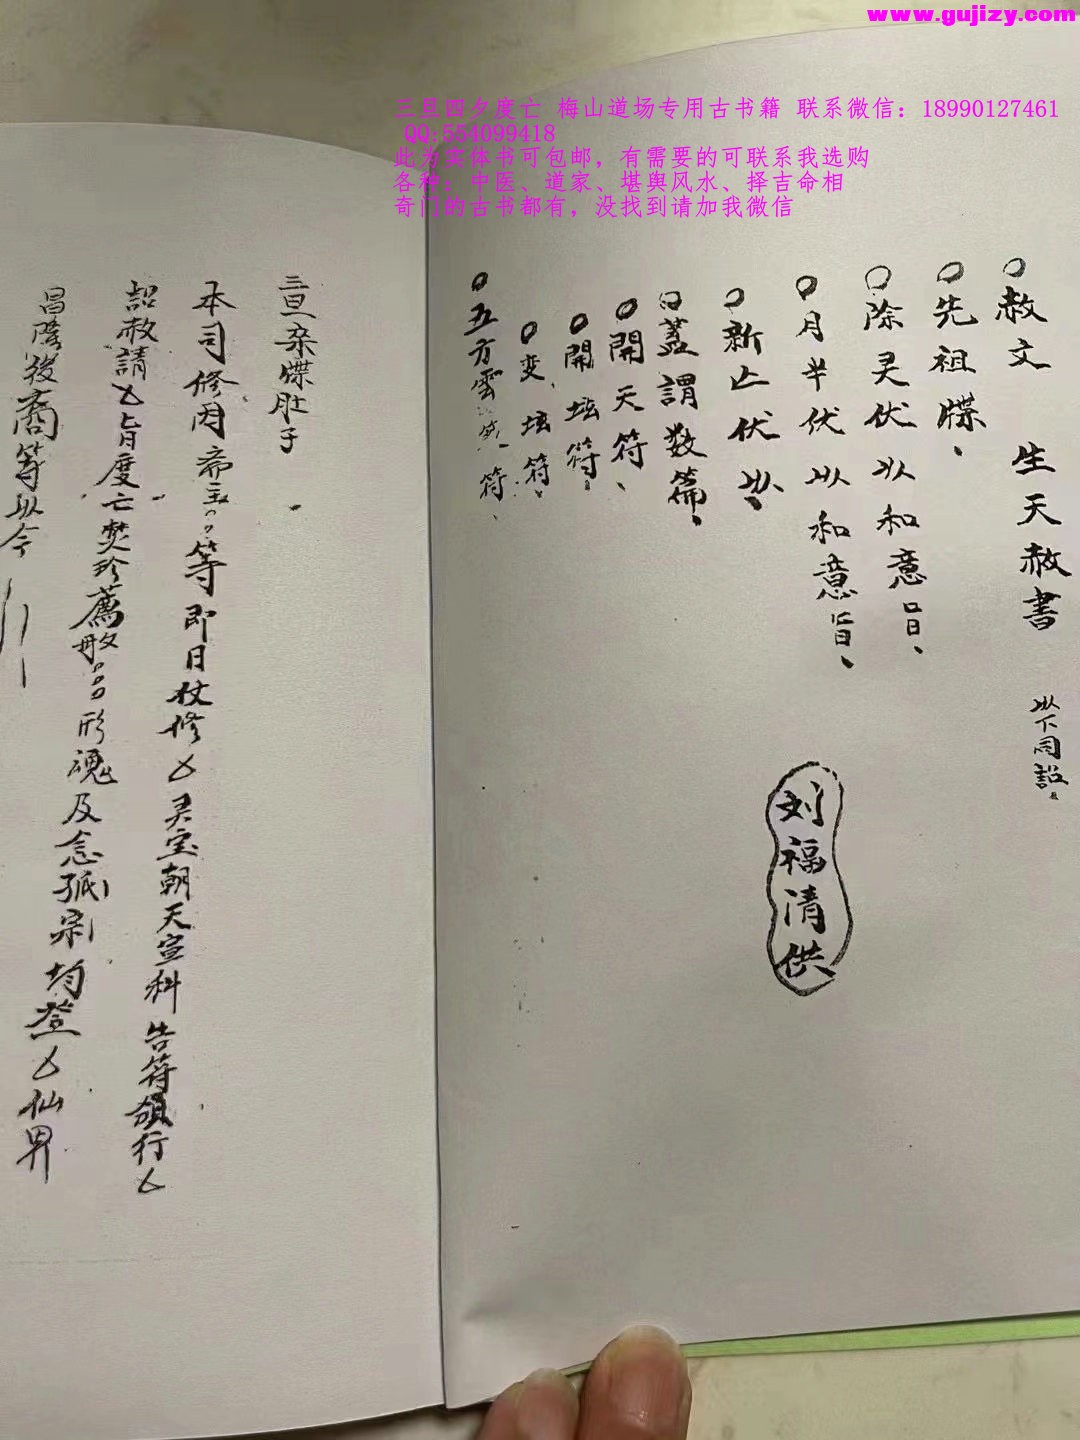 www.gujizy.com
三旦四夕度亡 梅山道场专用古书籍 联系微信：18990127461
QQ:554099418
此为实体书可包邮，有需要的可联系我选购
各种：中医、道家、堪舆风水、择吉命相
奇门的古书都有，没找到请加我微信
赦文 生天赦書 以下同詔
先祖牒、
除灵伏以和意旨、
月半伏以和意旨、
新亡伏以、
蓋謂数篇、
開天符、
開坛符、
变坛符、
五方雲 符、
刘福清供
三旦杂牒肚子
本司修因斋主 等即日仗修 灵宝朝天宣科告符 行
詔赦請 旨度亡焚珍薦 形魂及念孤宗均登 仙界
昌隆後裔等以今